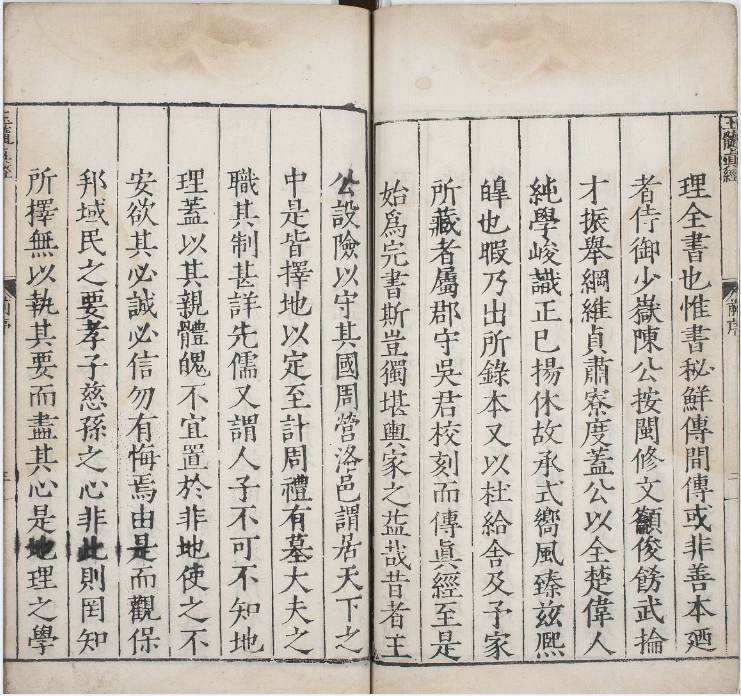 玉髓真經
前序
理全書也惟書秘鮮傳間傳或非善本廼
者侍御少嶽陳公按閩修文籲俊飭武掄
才振舉綱維貞肅寮度蓋公以全楚偉人
純學峻識正已揚休故承式嚮風臻玆熙
皡也暇乃出所錄本又以杜給舍及予家
所藏者屬郡守吳君校刻而傳眞經至是
始爲完書斯豈獨堪輿家之益哉昔者王
公設險以守其國周營洛邑謂居天下之
中是皆擇地以定至計周禮有墓大夫之
職其制甚詳先儒又謂人子不可不知地
理蓋以其親體魄不宜置於非地使之不
安欲其必誠必信勿有悔焉由是而觀保
邦域民之要孝子慈孫之心非此則罔知
所擇無以執其要而盡其心是地理之學